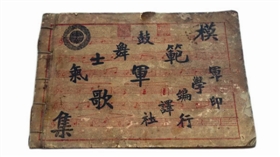 鼓舞士氣
模範軍歌集
軍學編譯社
印行